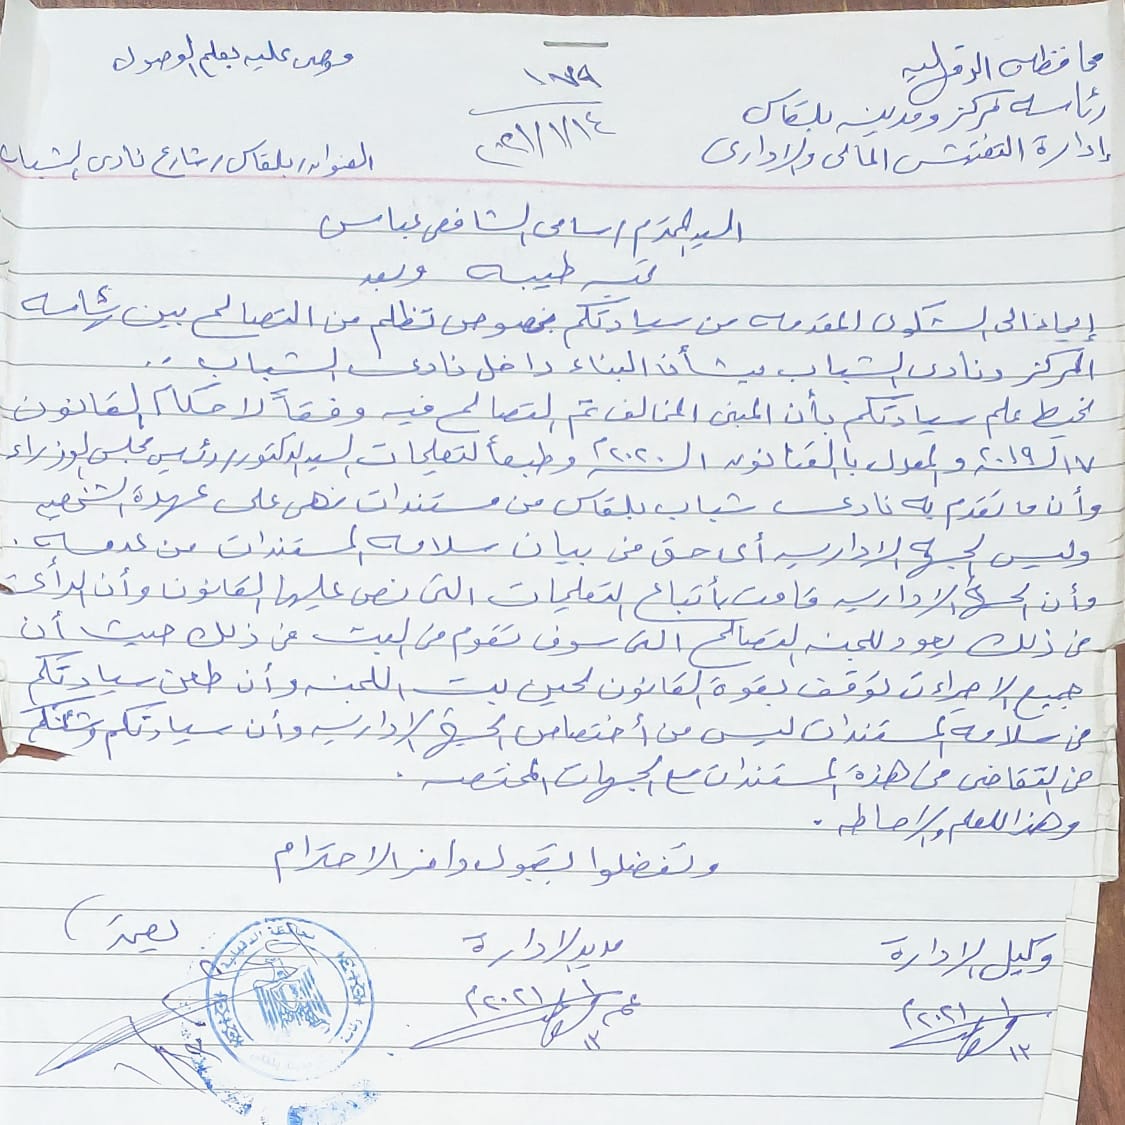 محافظة الدقهلية
رئاسة مركز ومدينة بلقاس
إدارة التفتيش المالى والإدارى
١٠٧٩
٢٠٢١/١/١٤
موصى عليه بعلم الوصول
العنوان/ بلقاس/ شارع نادى الشباب
السيد المحترم/ سامى الشافعى عباس
تحية طيبة وبعد
إيماءا الى الشكوى المقدمه من سيادتكم بخصوص تظلم من التصالح بين رئاسة
المركز ونادى الشباب بشأن البناء داخل نادى الشباب ..
نحيط علم سيادتكم بأن المبنى المخالف تم التصالح فيه وفقاً لاحكام القانون
١٧ لسنة ٢٠١٩ والمعدل بالقانون لسنة ٢٠٢٠ وطبقاً لتعليمات السيد الدكتور/ رئيس مجلس الوزراء
وأن ما تقدم به نادى شباب بلقاس من مستندات فهى على عهدة الشخصيه
وليس لجهة الاداريه أى حق فى بيان سلامه المستندات من عدمه .
وأن الجهة الاداريه قامت بأتباع التعليمات التى نص عليها القانون وأن الرأى
فى ذلك يعود للجنه التصالح التى سوف تقوم فى البت فى ذلك حيث أن
جميع الاجراءت توقف بقوة القانون لحين بت اللجنه وأن طعن سيادتكم
فى سلامه المستندات ليس من أختصاص الجهة الاداريه وأن سيادتكم وشئنكم
فى التقاضى فى هذة المستندات مع الجهات المختصه .
وهذا للعلم والاحاطه .
وتفضلوا بقبول وافر الاحترام
وكيل الادارة
مدير الادارة
يعتمد
٢٠٢١/١/١٣
٢٠٢١/١/١٣